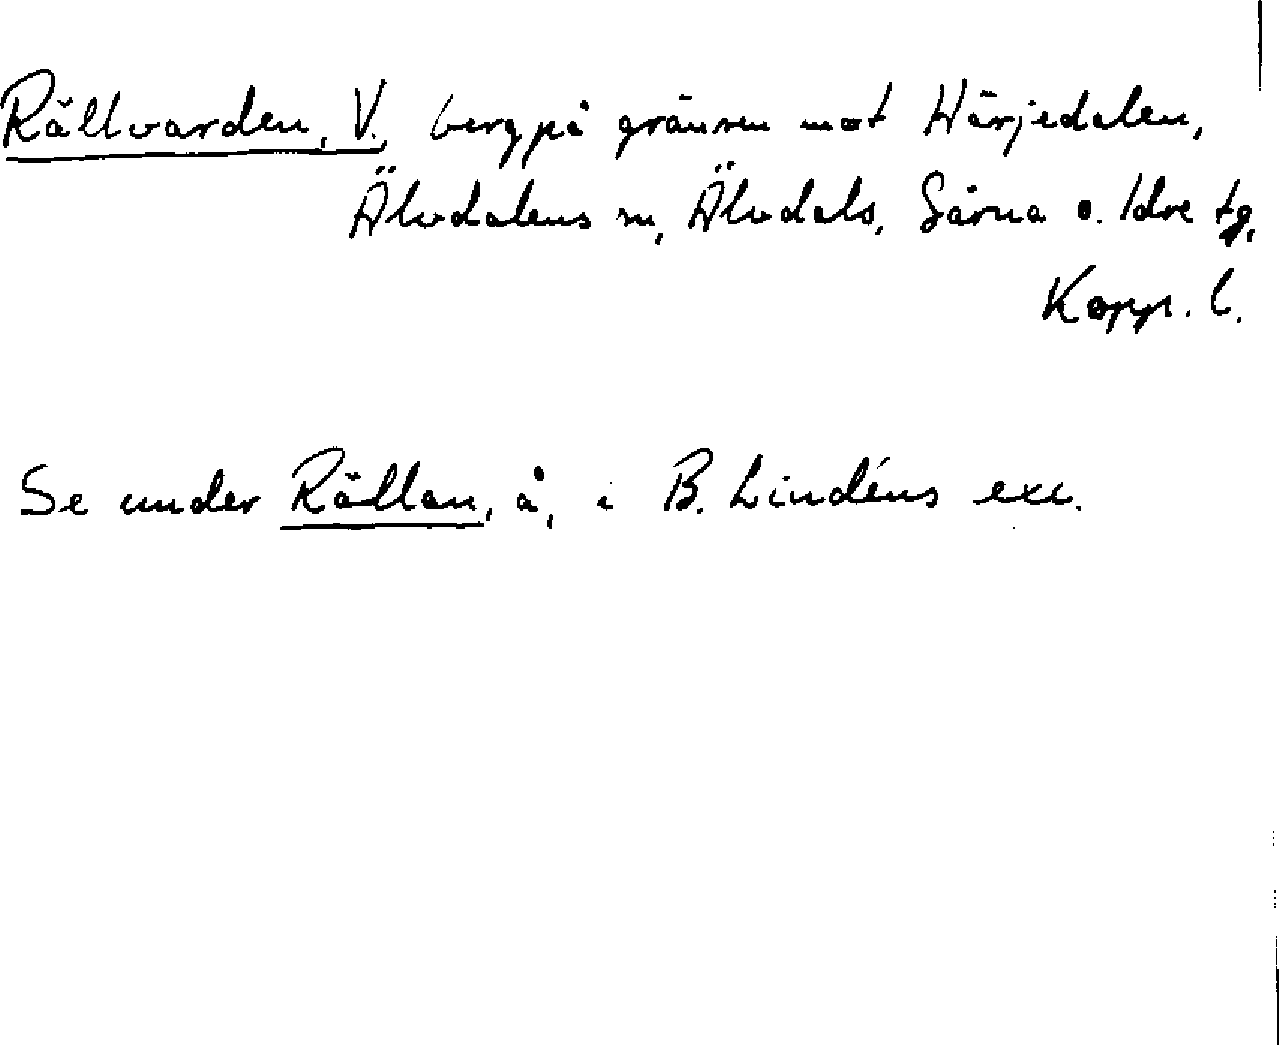 Rällvarden, V. berg på gränsen mot Härjedalen,
Älvdalens sn, Älvdals, Särna o. Idre tg,
Kopp. l.
Se under Rällan, å, i B. Lindéns exc.